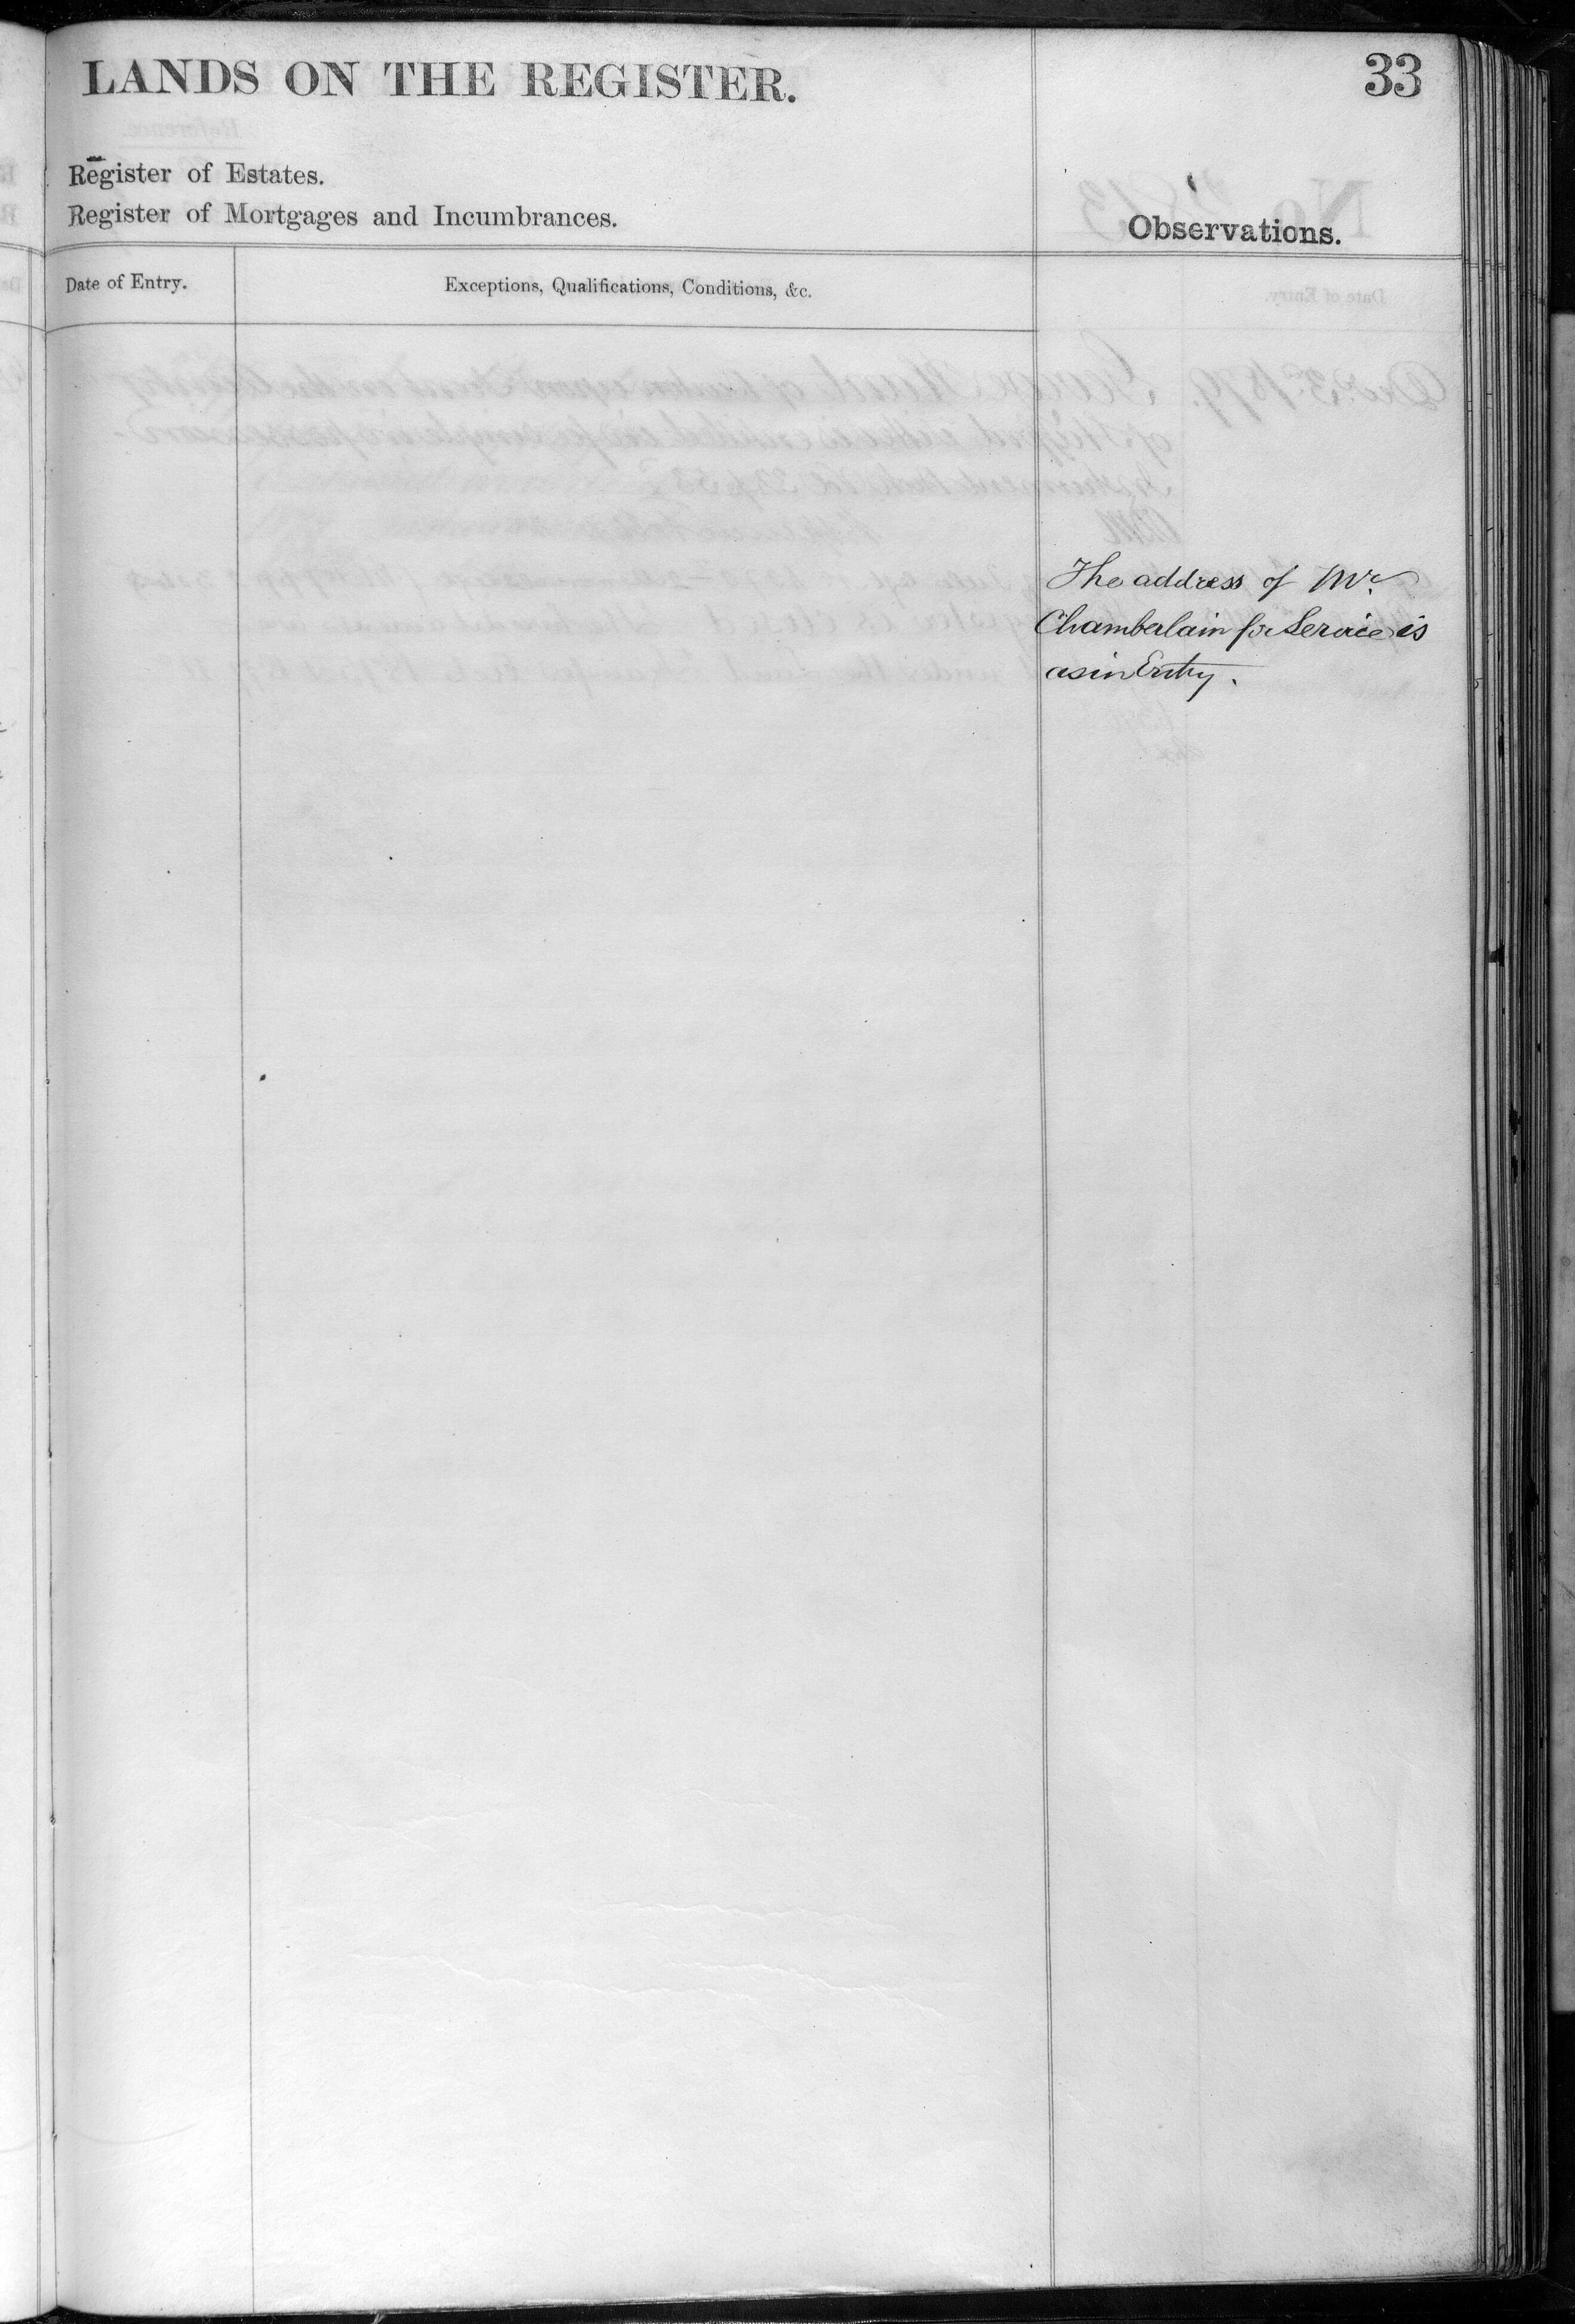 LANDS ON THE REGISTER.
33
Register of Estates.
Register of Mortgages and Incumbrances.
Observations.
Date of Entry.
Exceptions, Qualifications, Conditions, &c.
The address of Mr.
Chamberlain for Service is
as in Entry.